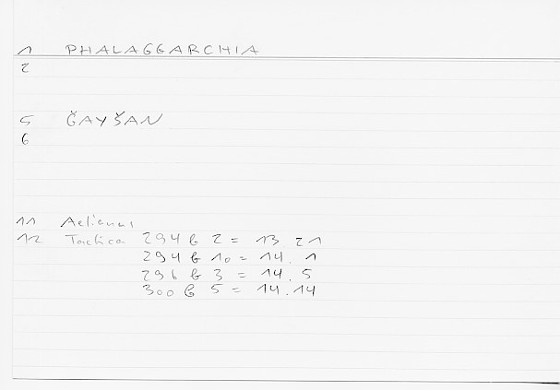 1 PHALAGGARCHIA
2
5 ǦAYŠAN
6
11 Aelianus
12 Tactica 294 b 2 = 13. 21
294 b 10 = 14. 1
296 b 3 = 14. 5
300 b 5 = 14.14